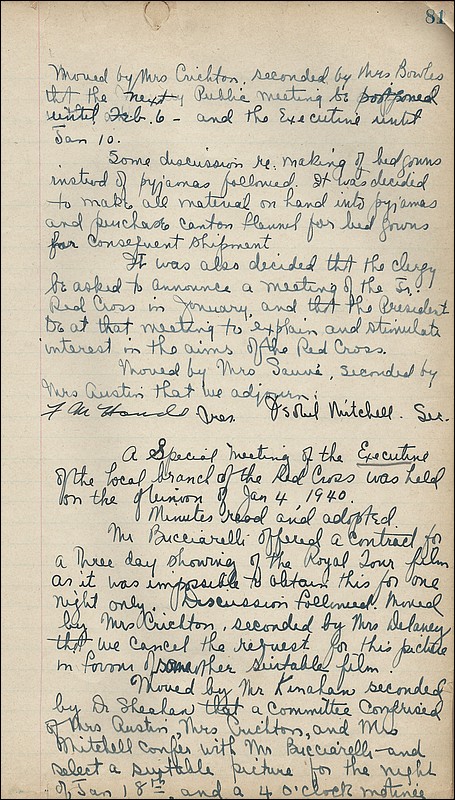 81
Moved by Mrs Crichton, seconded by Mrs. Bowles
tht the next Public meeting be postponed
until Feb. 6 - and the Executive until
Jan 10.
Some discussion re. making of bed gowns
instead of pyjamas followed. It was decided
to make all material on hand into pyjamas
and purchase canton flannel for bed gowns
for consequent shipment
It was also decided tht the clergy
be asked to announce a meeting of the Jr.
Red Cross in January, and tht the President
be at that meeting to explain and stimulate
interest in the aims of the Red Cross.
Moved by Mrs Sauvé, seconded by
Mrs Austin that we adjourn.
Pres. Isobel Mitchell. Sec.
A Special meeting of the Executive
of the local branch of the Red Cross was held
on the of Jan 4 1940.
Minutes read and adopted.
Mr Bucciarelli offered a contract for
a three day showing of the Royal Tour film
as it was impossible to obtain this for one
night only. Discussion followed. Moved
by Mrs Crichton, seconded by Mrs Delaney
tht we cancel the request for this picture
in favour of some other suitable film.
Moved by Mr Kinahan seconded
by Dr Sheahan that a committee comprised
of Mrs Austin, Mrs Crichton, and Mrs
Mitchell confer with Mr Bucciarelli - and
select a suitable picture for the night
of Jan 18th, and a 4 o'clock matinee